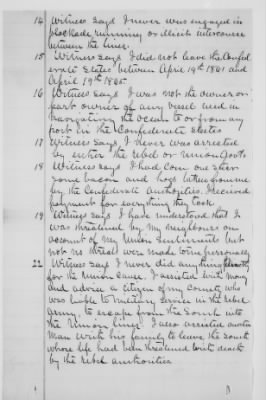 14 Witness says I never was engaged in
blockade running or illicit intercourse
between the lines.
15 Witness says I did not leave the Confed
erate States between April 19th 1861 and
April 19th 1865
16 Witness says I was not the owner or
part owner of any vessel used in
navigating the ocean to or from any
port in the Confederate States
17 Witness says I never was arrested
by either the rebel or Union Govts
18 Witness says I had Corn one steer
some bacon and hogs taken from me
by the Confederate Authorities. I received
payment for everything they took
19 Witness says I have understood that I
was threatened by my neighbors on
account of my Union Sentiments but
not no threat were made to me personally
22 Witness says I never did anything
for the Union cause. I assisted with money
and advice a citizen of my county who
was liable to military service in the rebel
army, to escape from the South into
the Union lines. I also assisted another
man with his family to leave the South
whose life had been threatened with death
by the rebel authorities